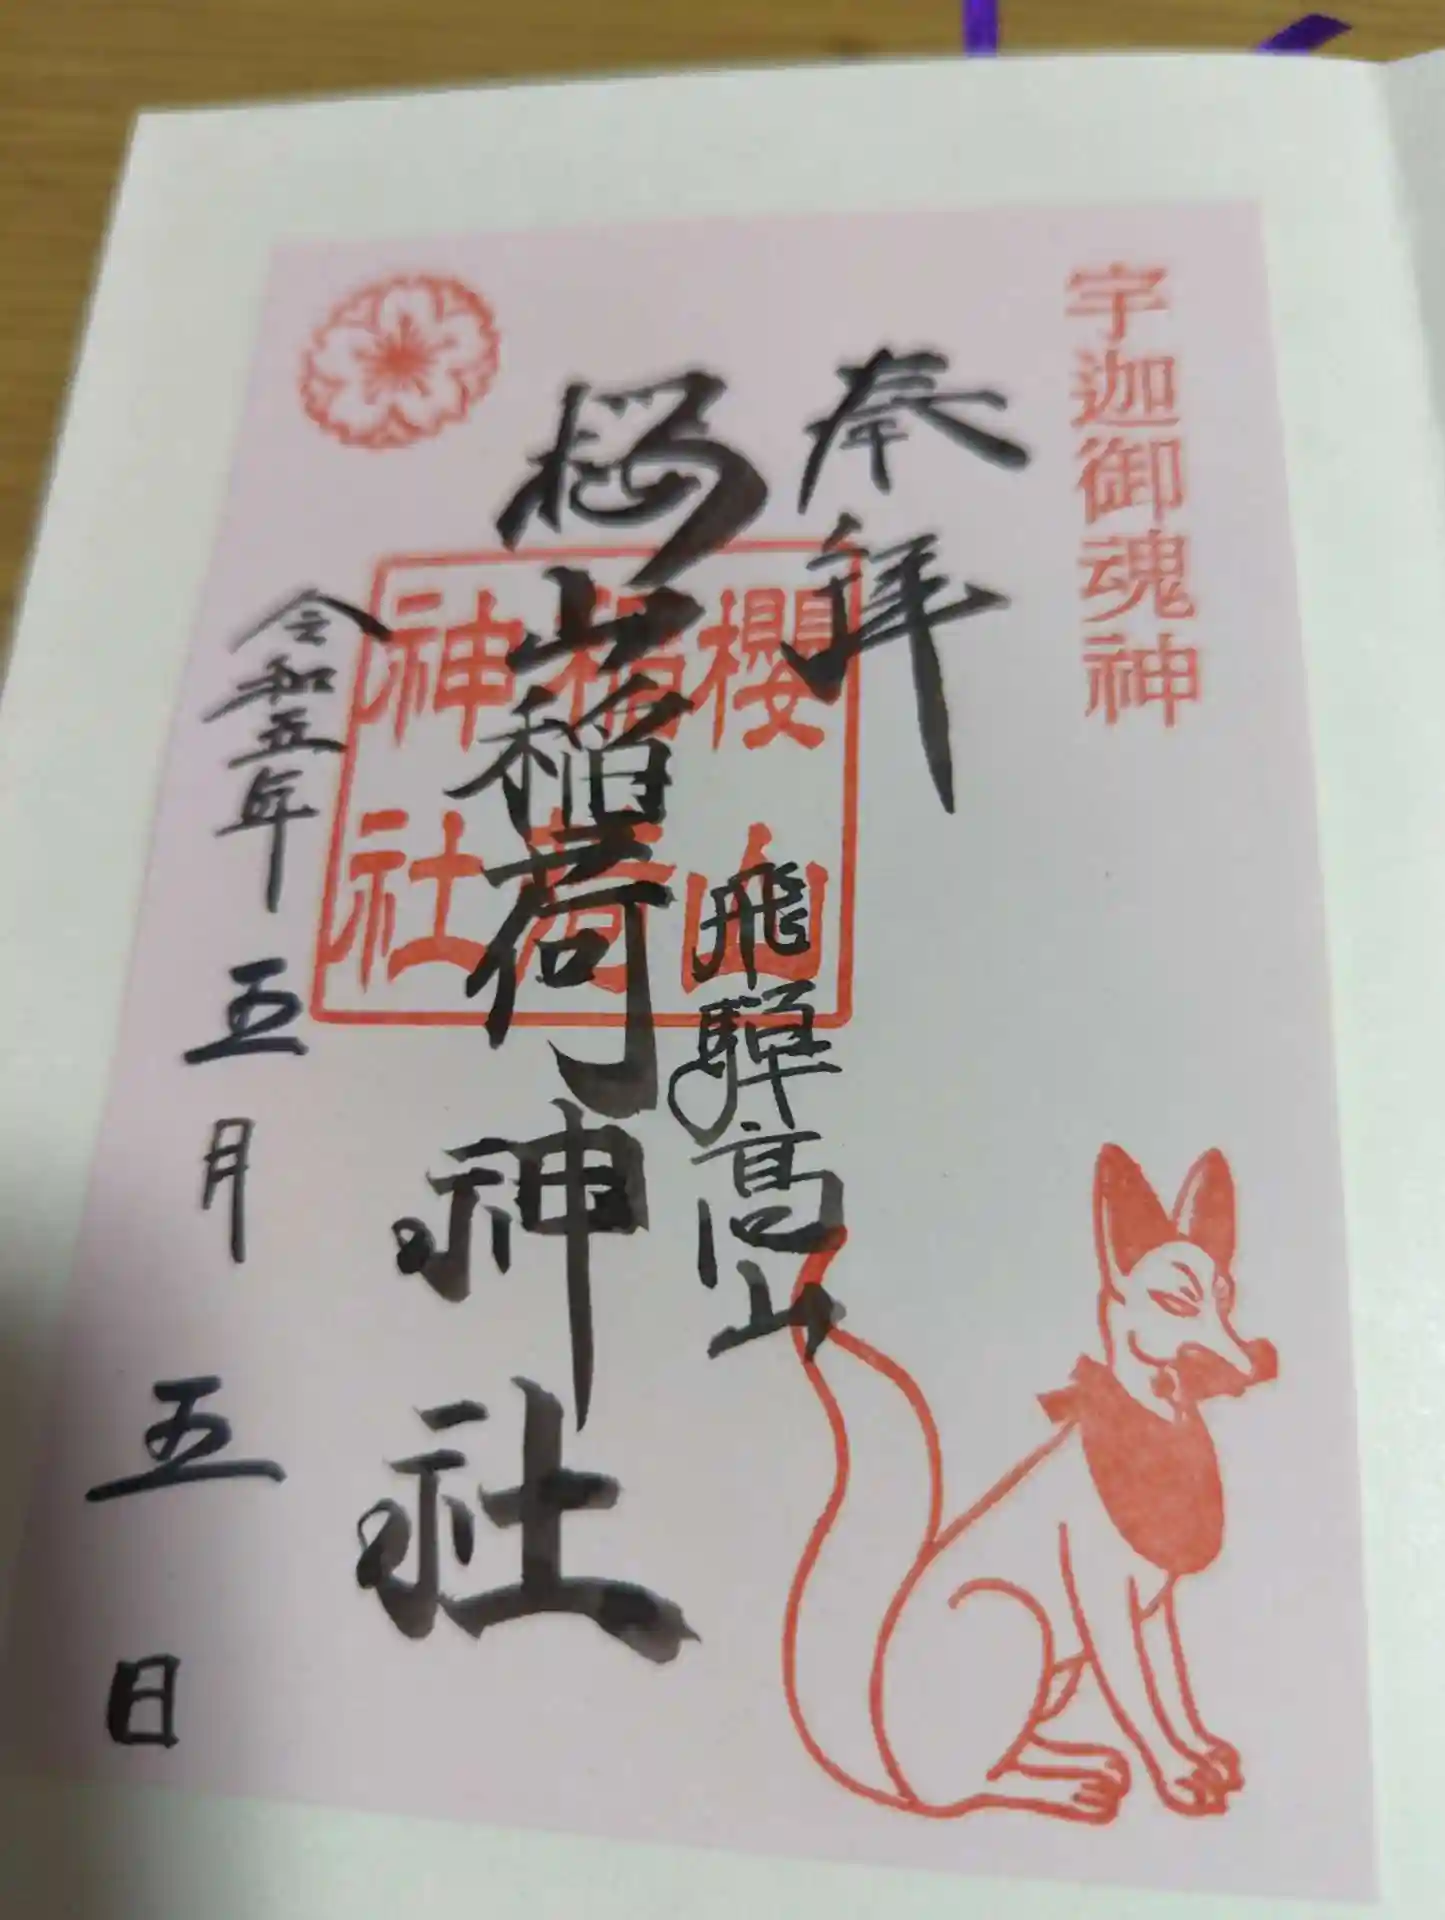 宇迦御魂神
奉拝
飛騨高山
桜山稲荷神社
櫻山
稲荷
神社
令和五年
五月
五日